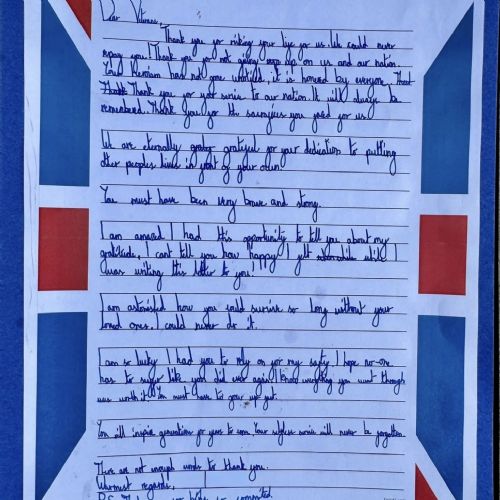 Dear Veteran,
Thank you for risking your life for us. We could never
repay you. Thank you for not giving up on us and our nation.
Your Heroism has not gone unnoticed, it is honored by everyone.
Thank you for your service to our nation. It will always be
remembered. Thank you for the sacrifices you made for us.
We are eternally grateful for your dedication to putting
other peoples lives in front of your own.
You must have been very brave and strong.
I am amazed I had this opportunity to tell you about my
gratitude, I cant tell you how happy I felt while I
was writing this letter to you!
I am astonished how you could survive so long without your
loved ones. I could never do it.
I am so lucky I had you to rely on for my safty. I hope no-one
has to suffer like you did ever again. I know everything you went through
was worth it. You must have to your
You will inspire generations for years to come. Your selfless service will never be forgotten.
There are not enough words to thank you.
Warmest regards,
P.S. so committed.